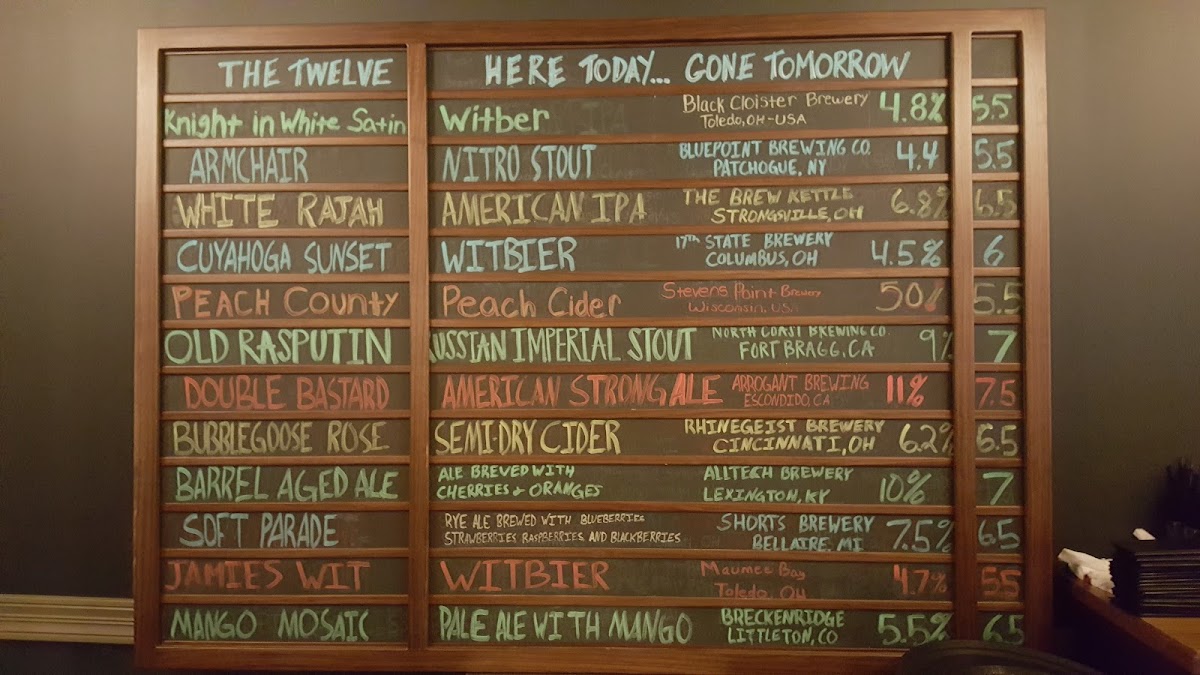 THE TWELVE HERE TODAY... GONE TOMORROW
Knight in White Satin Witber Black Cloister Brewery 4.8% 5.5
Toledo, OH-USA
ARMCHAIR NITRO STOUT BLUEPOINT BREWING CO. 4.4 5.5
PATCHOGUE, NY
WHITE RAJAH AMERICAN IPA THE BREW KETTLE 6.8% 6.5
STRONGSVILLE, OH
CUYAHOGA SUNSET WITBIER 17TH STATE BREWERY 4.5% 6
COLUMBUS, OH
PEACH COUNTY Peach Cider Stevens Point Brewery 50% 5.5
Wisconsin, USA
OLD RASPUTIN RUSSIAN IMPERIAL STOUT NORTH COAST BREWING CO. 9% 7
FORT BRAGG, CA
DOUBLE BASTARD AMERICAN STRONG ALE ARROGANT BREWING 11% 7.5
ESCONDIDO, CA
BUBBLEGOOSE ROSE SEMI-DRY CIDER RHINEGEIST BREWERY 6.2% 6.5
CINCINNATI, OH
BARREL AGED ALE ALE BREVED WITH ALLTECH BREWERY 10% 7
CHERRIES & ORANGES LEXINGTON, KY
SOFT PARADE RYE ALE BREWED WITH BLUEBERRIES SHORTS BREWERY 7.5% 6.5
STRAWBERRIES RASPBERRIES AND BLACKBERRIES BELLAIRE, MI
JAMIES WIT WITBIER Maumee Bay 4.7% 5.5
Toledo, OH
MANGO MOSAIC PALE ALE WITH MANGO BRECKENRIDGE 5.5% 6.5
LITTLETON, CO